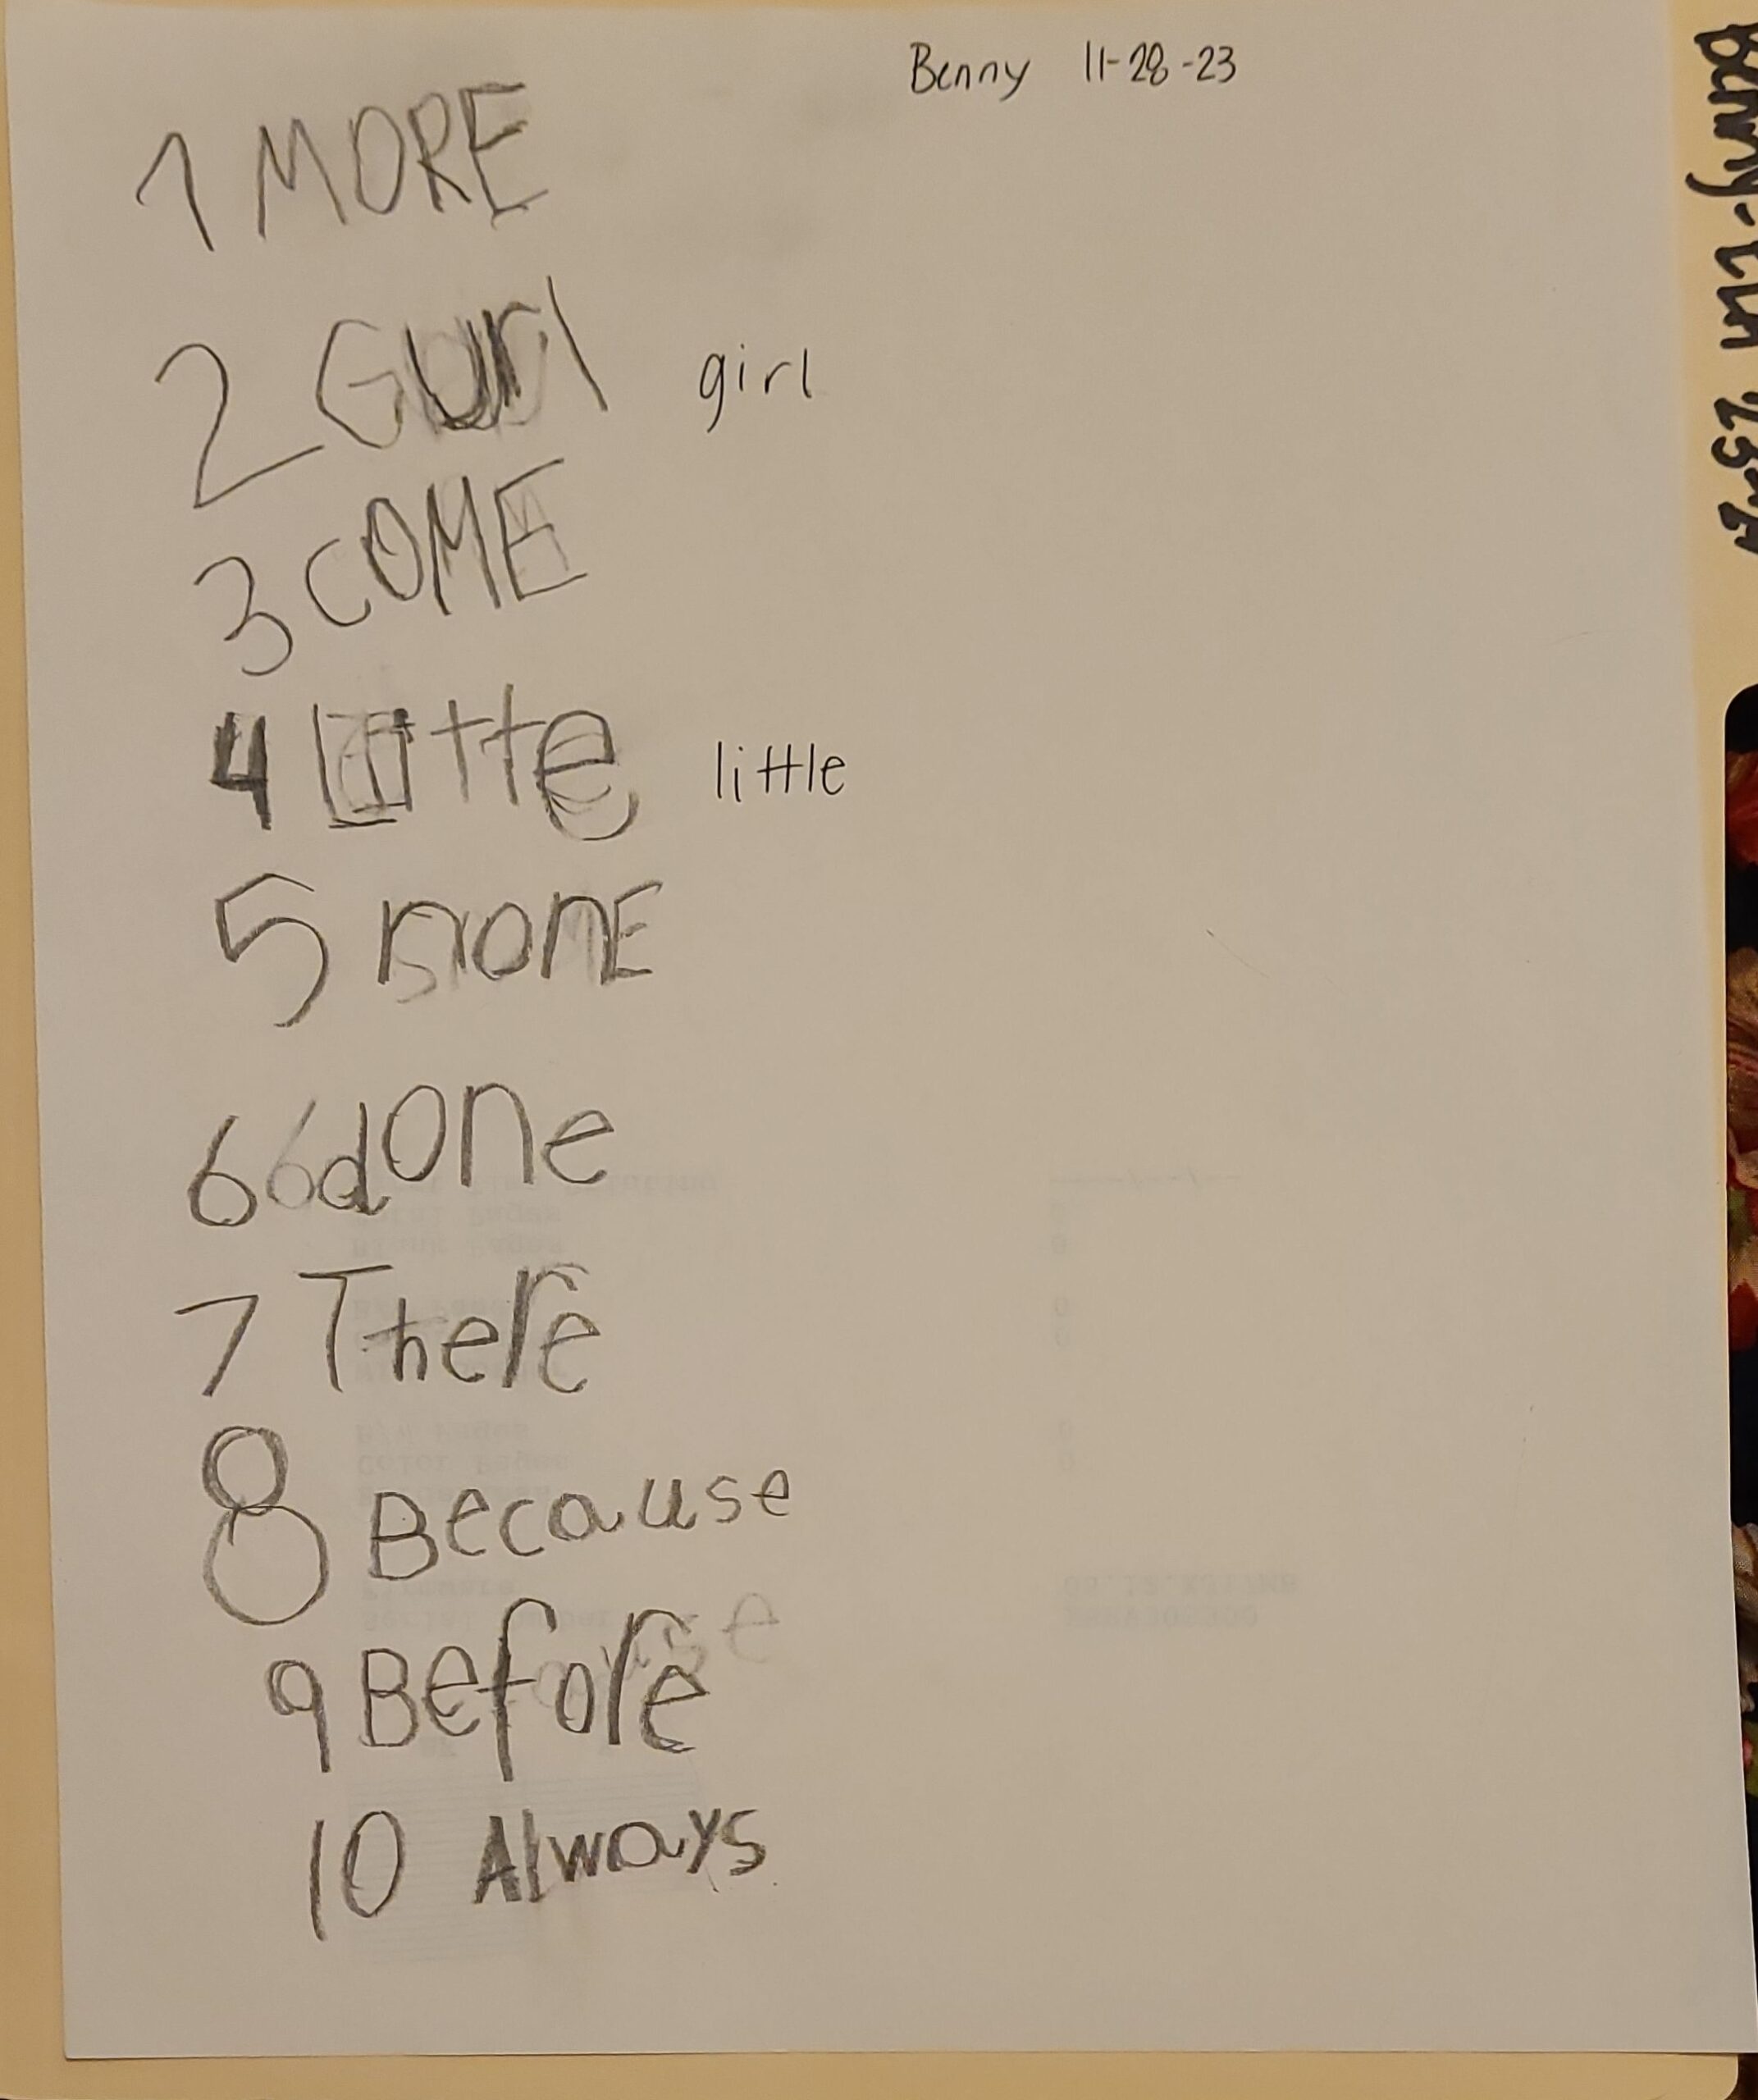 Benny 11-28-23
1 MORE
2 Gurl girl
3 COME
4 Litte little
5 nonE
6 done
7 There
8 Because
9 Before
10 Always
Benny